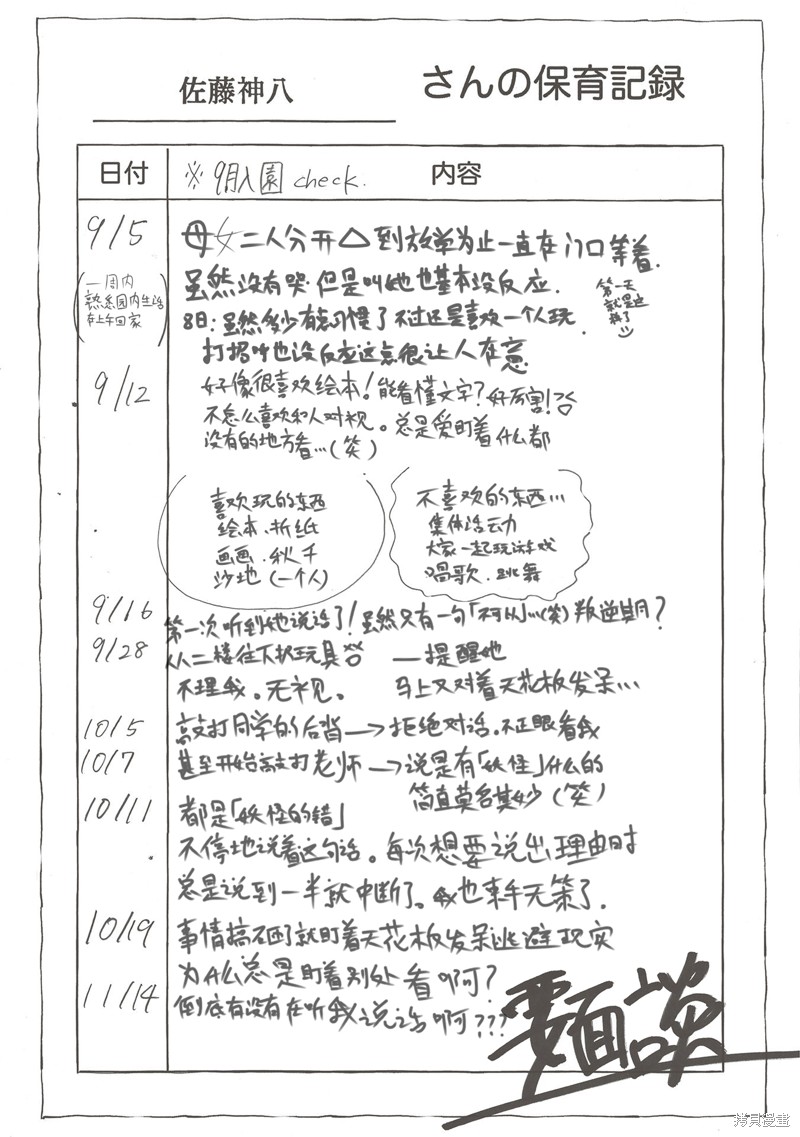 佐藤神八 さんの保育記録
日付 ※9月入園 check. 内容
9/5 母女二人分开△到放学为止一直在门口等着.
虽然没有哭.但是叫她也基本没反应.
第一天
就是这
样了
(一周内
熟悉园内生活
在上午回家)
8日:虽然多少有点习惯了 不过还是喜欢一个人玩.
打招呼也没反应这点很让人在意
9/12 好像很喜欢绘本!能看懂文字?好厉害!
不怎么喜欢和人对视。总是爱盯着什么都
没有的地方看…(笑)
喜欢玩的东西
绘本、折纸
画画.秋千
沙地(一个人)
不喜欢的东西…
集体活动
大家一起玩游戏
唱歌.跳舞
9/16 第一次听到她说话了!虽然只有一句「不可以」…(笑)叛逆期?
9/28 从二楼往下扔玩具 —提醒她
不理我。无视。 马上又对着天花板发呆…
10/5 敲打同学的后背→拒绝对话.不正眼看我
10/7 甚至开始敲打老师→说是有「妖怪」什么的
简直莫名其妙(笑)
10/11 都是「妖怪的错」
不停地说着这句话。每次想要说出理由时
总是说到一半就中断了。我也束手无策了.
10/19 事情搞砸了就盯着天花板发呆逃避现实
为什么总是盯着别处看啊?
11/14 倒底有没有在听我说话啊???
要面談
拷貝漫畫